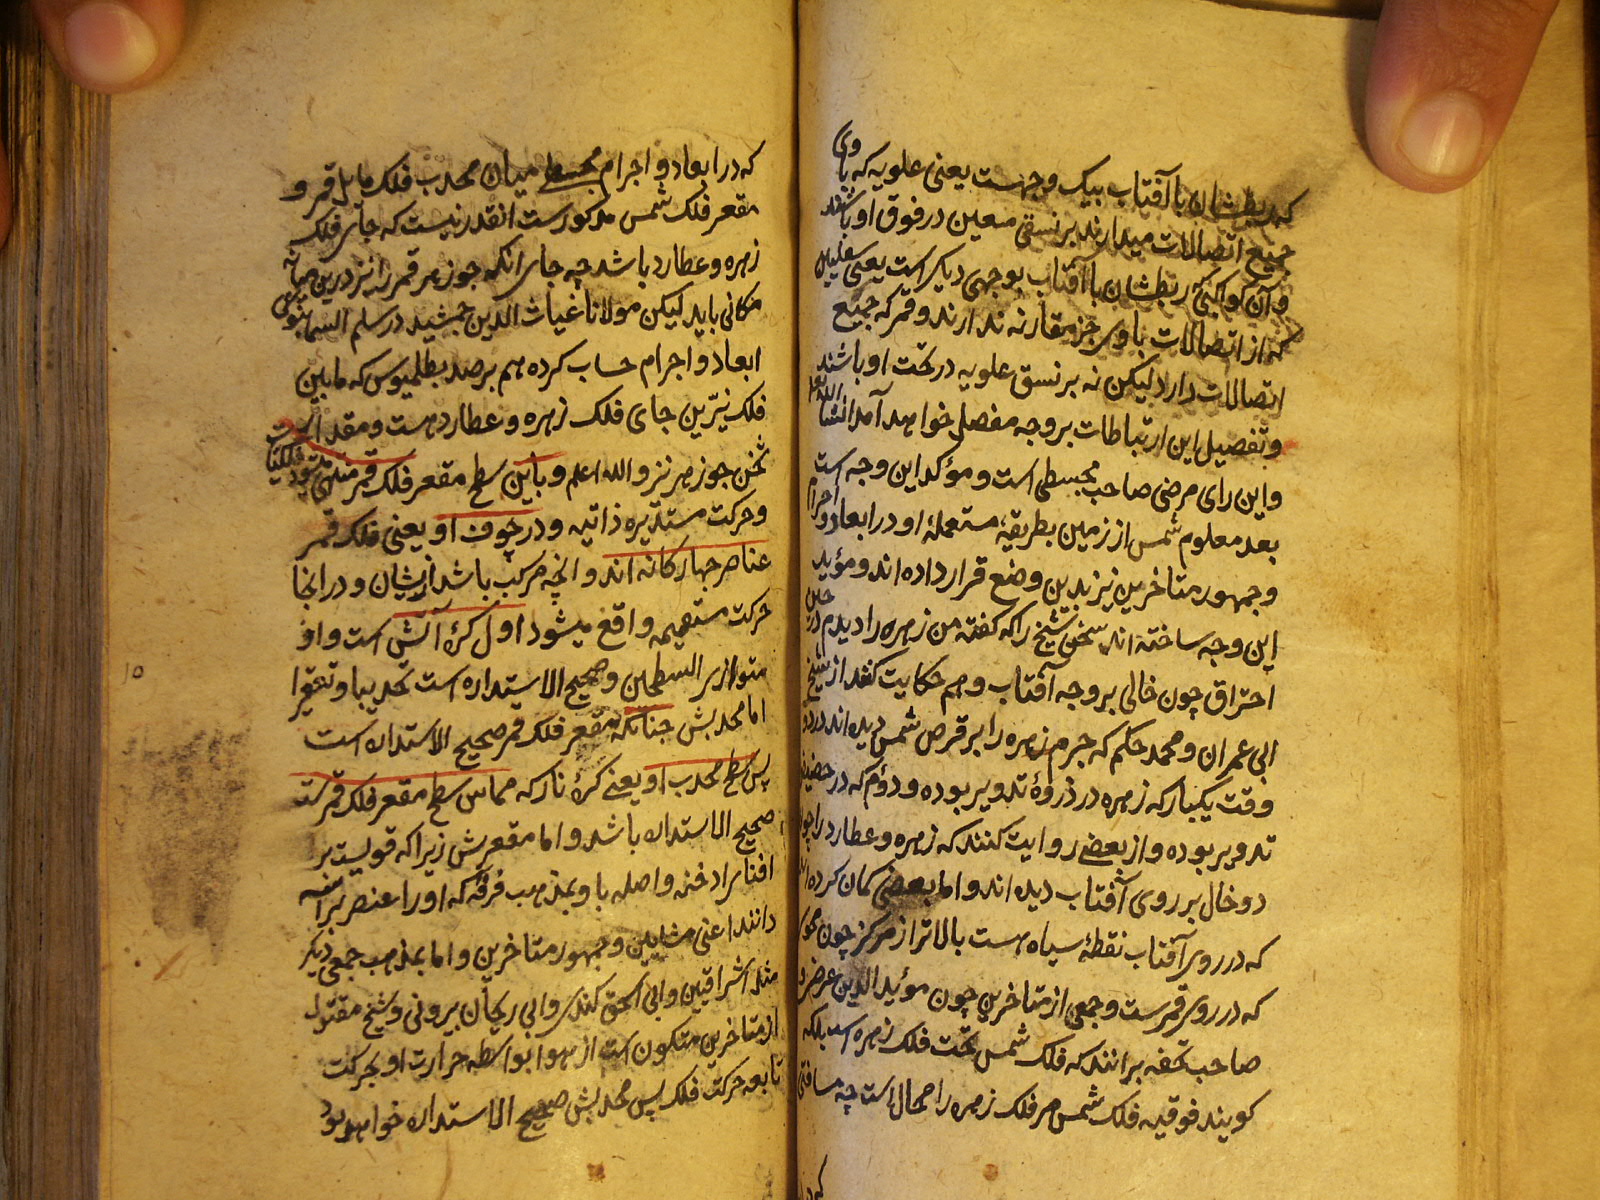 که ربطشان با آفتاب بیک وجهست یعنی علویه که با وی
جمیع اتصالات میدارند بر نسقی معین در فوق او باشند
و آن کواکبی که ربطشان با آفتاب بوجهی دیکر است یعنی سفلیین
که از اتصالات با وی جز مقارنه ندارند و قمر که جمیع
اتصالات دارد لیکن نه بر نسق علویه در تحت او باشند
و تفصیل این ارتباطات بر وجه مفصل خواهد آمد انشاالله تعالی
و این رای مرضی صاحب مجسطی است و مؤکد این وجه است
بعد معلوم شمس از زمین بطریقهٔ مستعملهٔ او در ابعاد و اجرام
و جمهور متاخرین نیز بدین وضع قرار داده اند و مؤید
این وجه ساخته اند سخن شیخ را که کفته من زهره را دیدم در حین
احتراق چون خالی بر وجه آفتاب و هم حکایت کنند از شیخ
ابی عمران و محمد حکیم که جرم زهره را بر قرص شمس دیده اند در دو
وقت یکبار که زهره در ذروهٔ تدویر بوده و دوم که در حضیض
تدویر بوده و از بعضی روایت کنند که زهره و عطارد را چون
دو خال بر روی آفتاب دیده اند و اما بعضی کمان کرده اند
که در روی آفتاب نقطهٔ سیاه هست بالاتر از مرکز چون محو
که در روی قمرست و جمعی از متاخرین چون مؤید الدین عرضی و
صاحب تحفه برانند که فلک شمس تحت فلک زهره است بلکه
کویند فوقیه فلک شمس مر فلک زهره را محال است چه مسافتی
که در ابعاد و اجرام مجسطی میان محدب فلک مایل قمر و
مقعر فلک شمس مذکورست انقدر نیست که جای فلک
زهره و عطارد باشد چه جای انکه جوزهر قمر را نیز درین میانه
مکانی باید لیکن مولانا غیاث الدین جمشید در سلم السماء
ابعاد و اجرام حساب کرده هم برصد بطلمیوس که مابین
فلک نیّرین جای فلک زهره و عطارد هست و مقدار
ثخن جوزهر نیز والله اعلم و باین سطح مقعر فلک قمر منتهی شود فلکیات
و حرکت مستدیره ذاتیه و در جوف او یعنی فلک قمر
عناصر چهار کانه اند و انچه مرکب باشد ازیشان و در انجا
حرکت مستقیمه واقع میشود اول کرهٔ آتش است و او
متوازی السطحین و صحیح الاستداره است تحدیبا و تقعیرا
اما محدبش جنانکه مقعر فلک قمر صحیح الاستداره است
پس سطح محدب او یعنی کرهٔ نار که مماس سطح مقعر فلک قمرست
صحیح الاستداره باشد و اما مقعرش زیرا که قویست بر
افنای ادخنه واصله باو بمذهب فرقه که او را عنصر برأسه
دانند اعنی مشایین و جمهور متاخرین و اما بمذهب جمعی دیکر
مثل اشراقیین و ابی اسحق کندی و ابی ریحان بیرونی و شیخ مقتول
از متاخرین متکون است از هوا بواسطه حرارت او بحرکت
تابعه حرکت فلک پس محدبش صحیح الاستداره خواهد بود